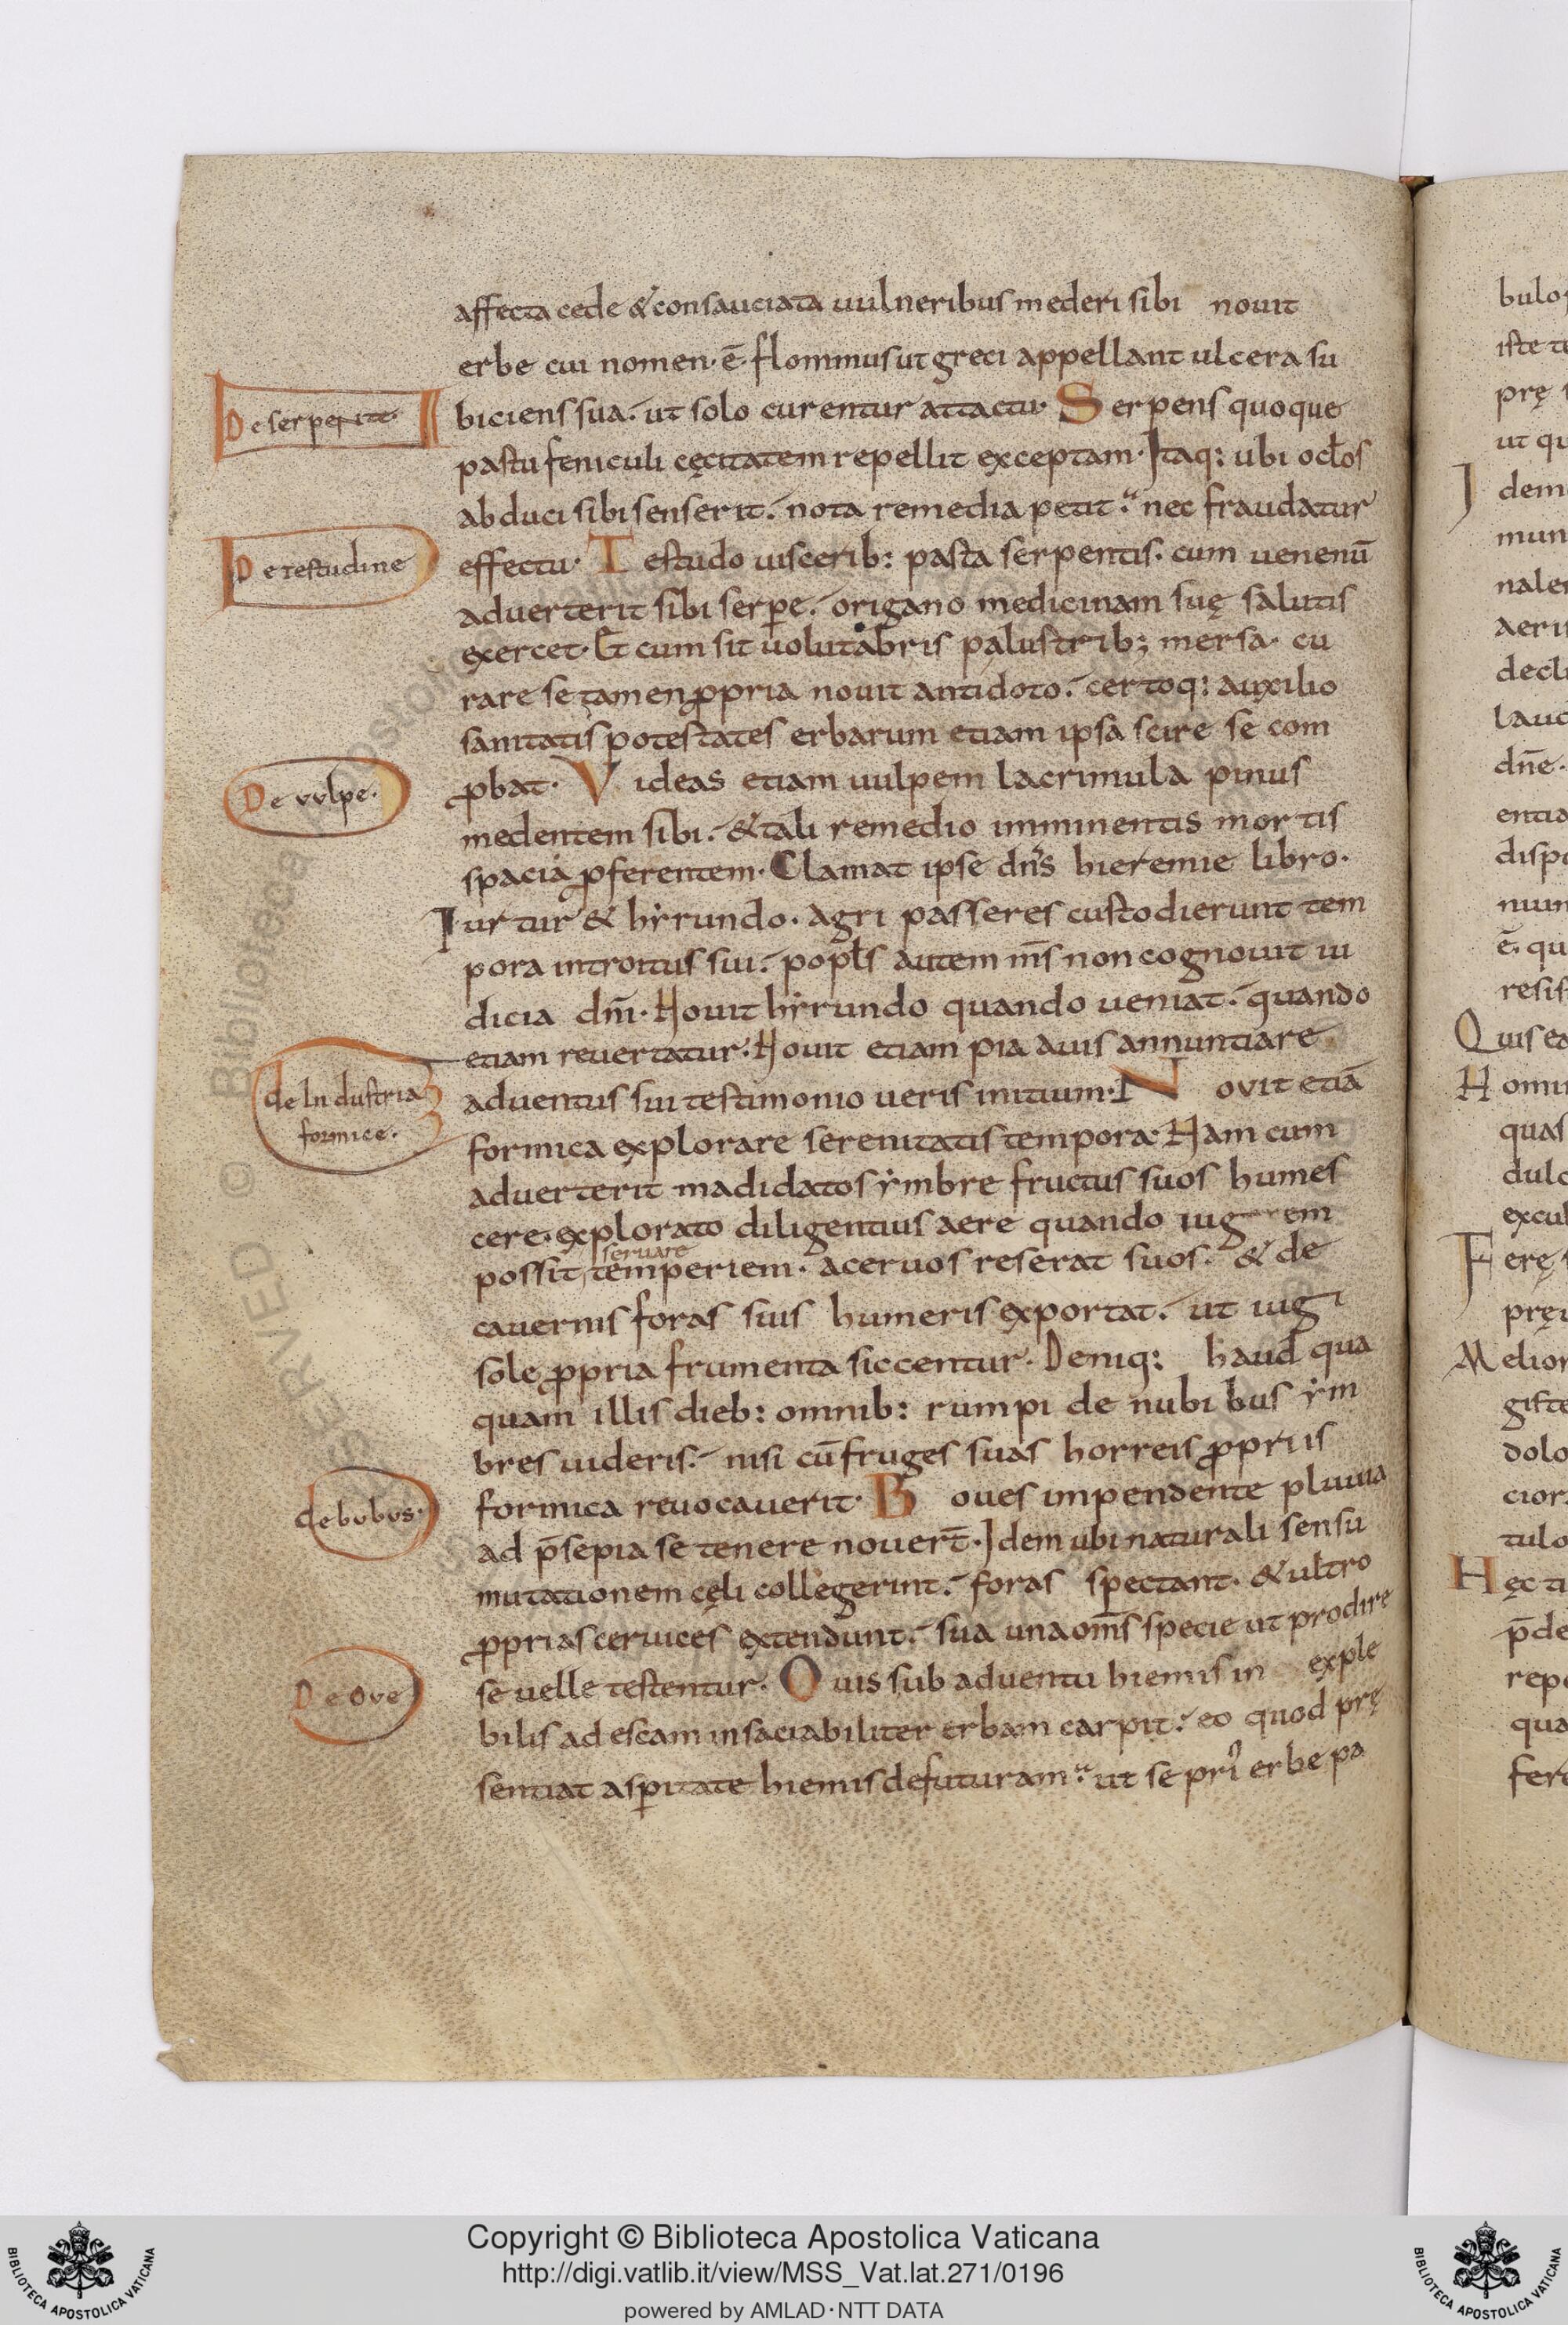 affecta cede & consauciata uulneribus mederi sibi nouit
erbe cui nomen· ē flommus ut greci appellant ulcera su
De serpente
biciens sua· ut solo curentur attactu· Serpens quoque
pastu feniculi cęcitatem repellit exceptam· Itaq: ubi oclos
abduci sibi senserit· nota remedia petit· nec fraudatur
De testudine
effectu· Testudo uiscerib: pasta serpentis· cum uenenū
aduerterit sibi serpe· origano medicinam suę salutis
exercet· Et cum sit uolutabris palustrib; mersa· cu
rare se tamen ꝓpria nouit antidoto· certoq: auxilio
sanitatis potestates erbarum etiam ipsa scire se com
De vvlpe·
ꝓbat· Videas etiam uulpem lacrimula pinus
medentem sibi· & tali remedio imminentis mortis
spacia ꝓferentem· Clamat ipse dn̄s hieremie libro·
Turtur & hẏrundo· agri passeres custodierunt tem
pora introitus sui· popl̄s autem m̄s non cognouit iu
dicia dn̄i· Nouit hẏrundo quando ueniat· quando
etiam reuertatur· Nouit etiam pia auis annuntiare
de Industria
formice·
aduentus sui testimonio ueris initium· Novit etiā
formica explorare serenitatis tempora· Nam cum
aduerterit madidatos ẏmbre fructus suos humes
cere· explorato diligentius aere quando iug em
seruare
possit, temperiem· aceruos reserat suos· & de
cauernis foras suis humeris exportat· ut iugi
sole ꝓpria frumenta siccentur· Deniq: haud qua
quam illis dieb: omnib: rumpi de nubibus ẏm
bres uideris· nisi cū fruges suas horreis ꝓpriis
de bvbvs·
formica reuocauerit· Boues impendente pluuia
ad p̄sepia se tenere nouert̄· Idem ubi naturali sensu
mutationem cęli collegerint· foras spectant· & ultro
ꝓprias ceruices extendunt· sua una om̄s specie ut prodire
De ove
se uelle testentur· Ouis sub aduentu hiemis in exple
bilis ad escam insaciabiliter erbam carpit· eo quod prę
sentiat asꝑitate hiemis defuturam· ut se pri᷒ erbe pa
bulos
iste te
prę
ut qu
Idem
mun
nale
aeri
decli
laud
dn̄e·
entia
disp
num
ē· qu
resis
Quis ea
Homi
quas
dulc
excul
Ferę
pręu
Melior
giste
dolo
cior
tulo
Hęc ti
p̄de
repe
qua
fere
Copyright © Biblioteca Apostolica Vaticana
http://digi.vatlib.it/view/MSS_Vat.lat.271/0196
powered by AMLAD·NTT DATA
BIBLIOTECA APOSTOLICA VATICANA
BIBLIOTECA APOSTOLICA VATICANA